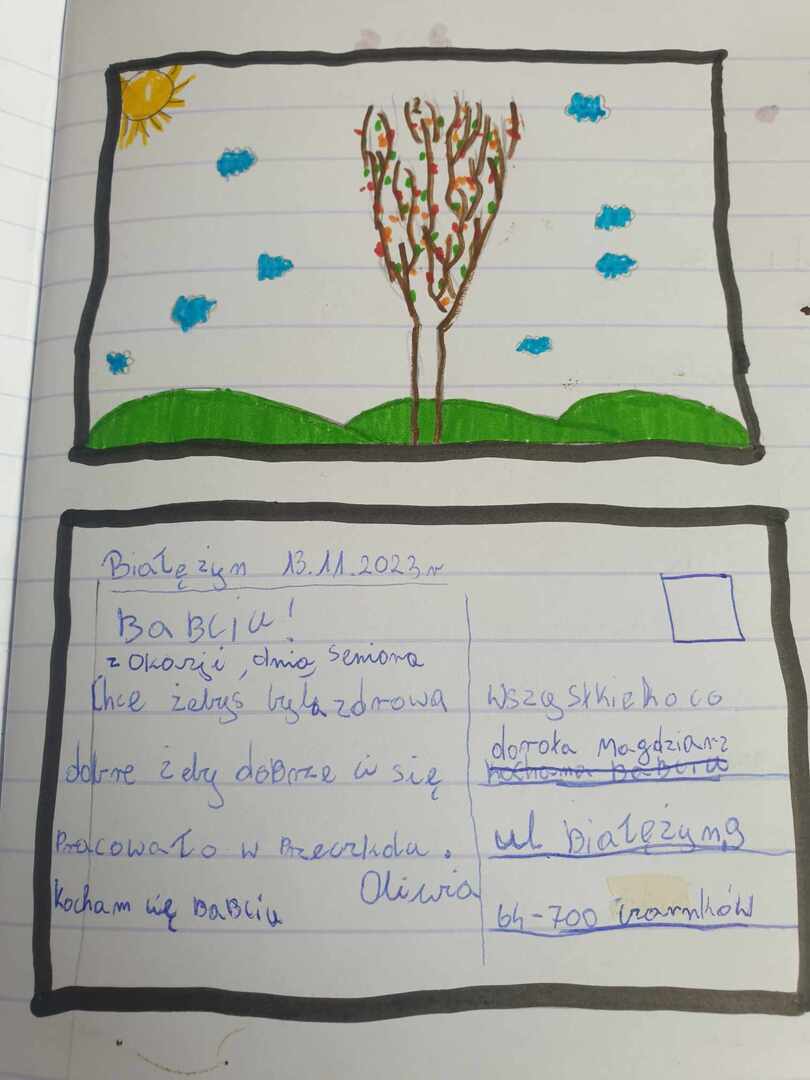 Białężyn 13.11.2023r
BaBciu!
z okazji dnia seniora
Chcę żebyś była zdrowa
dobre żeby doBrze ci się
Pracowało w Przeczkdu.
Kocham cię BaBciu
Oliwia
wszystkieho co
dorota Magdziarz
kochama BaBciu
ul Białężyn,9
64-700 czarnków